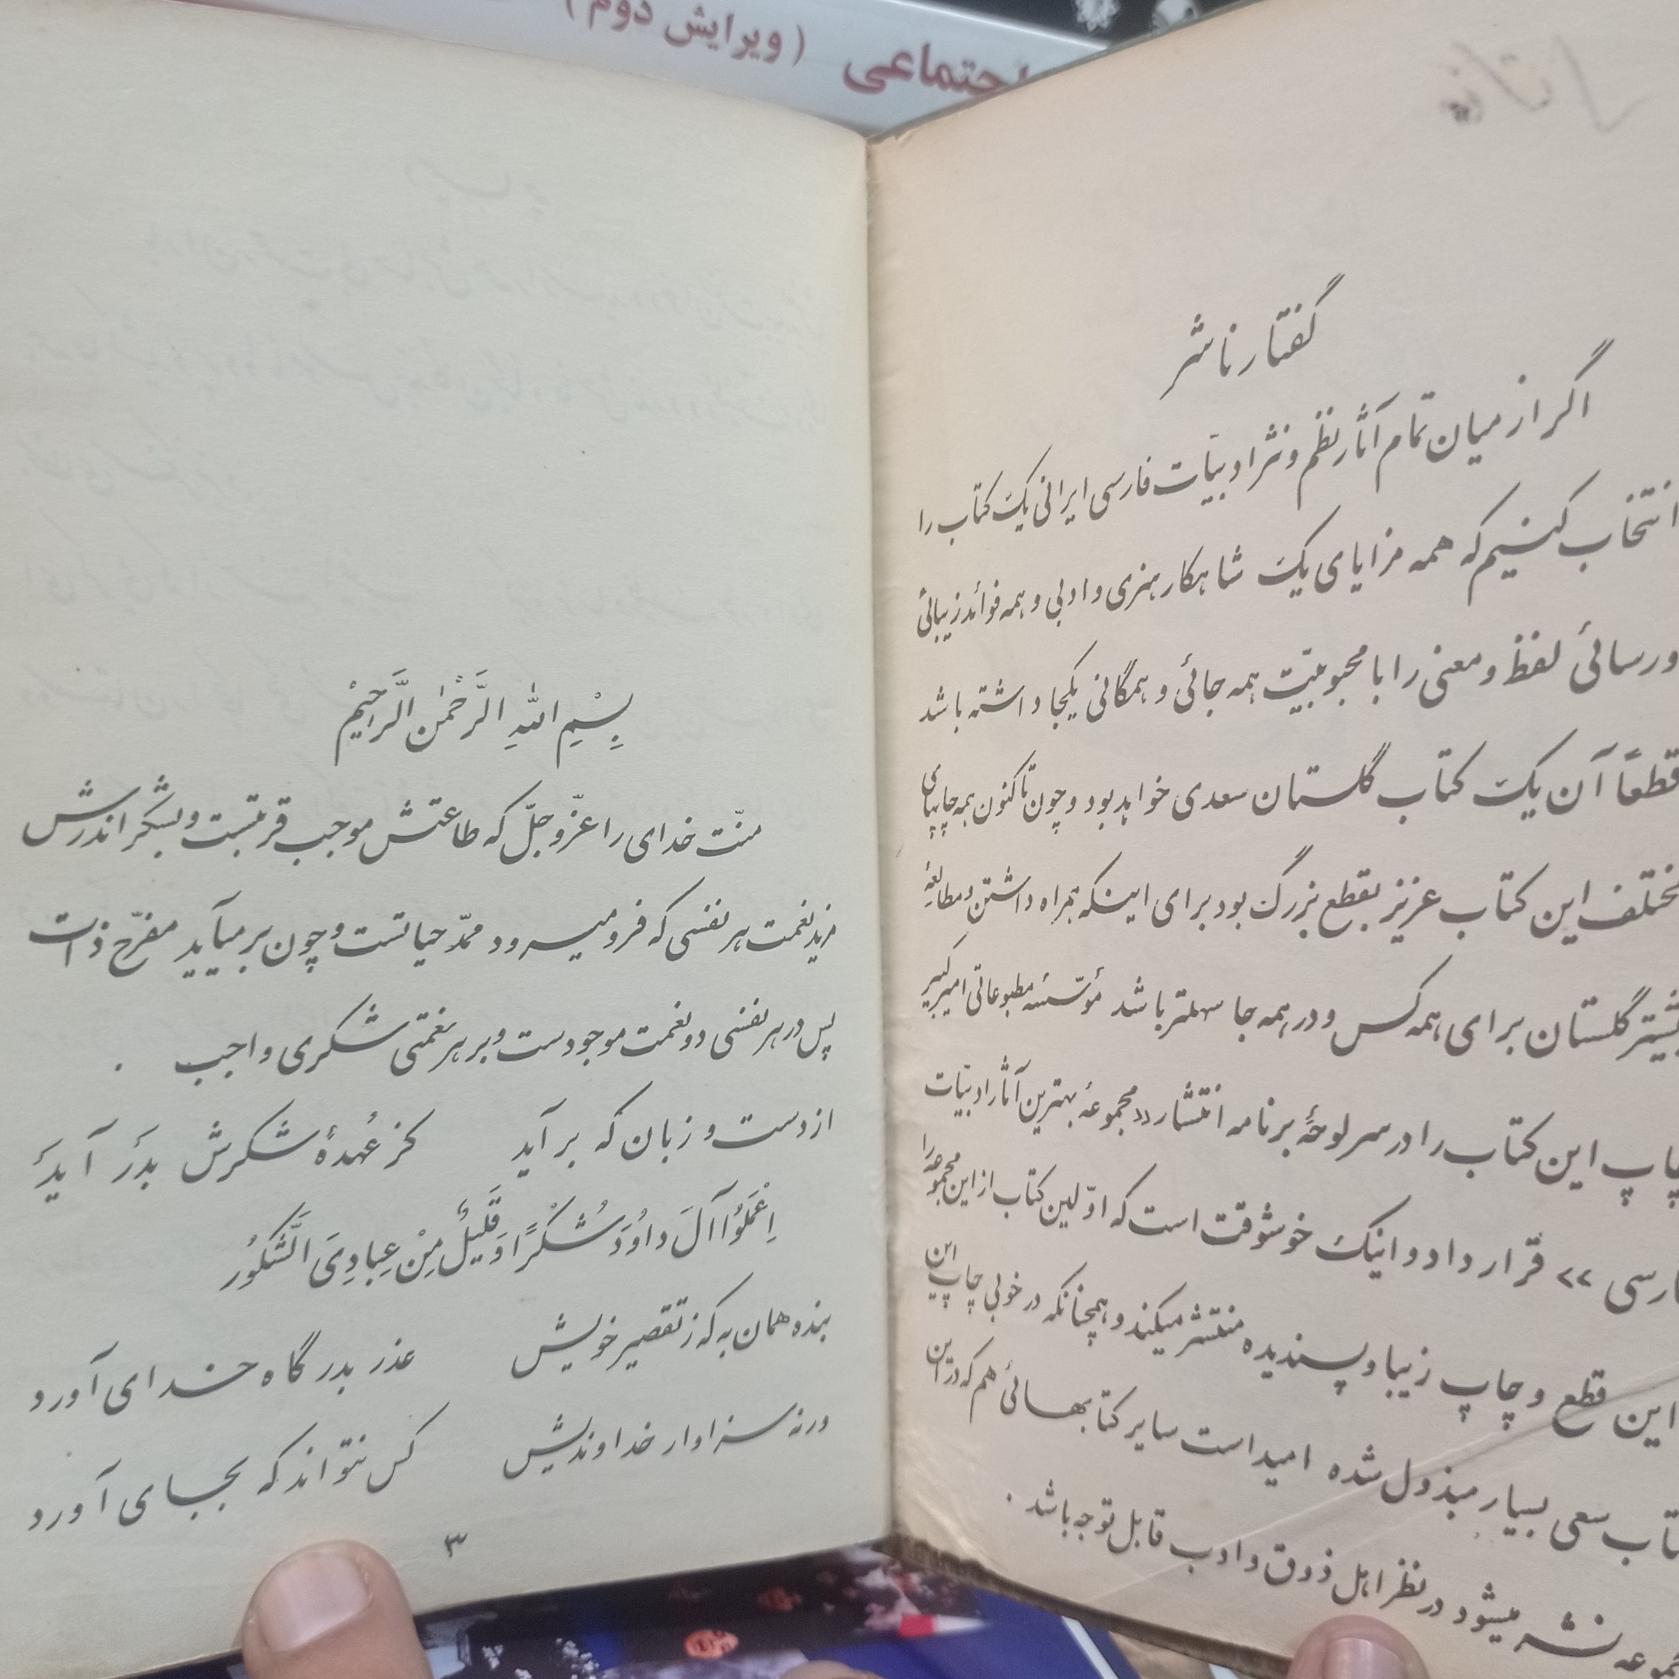 اجتماعی (ویرایش دوم)
گفتار ناشر
اگر از میان تمام آثار نظم و نثر ادبیّات فارسی ایرانی یک کتاب را
انتخاب کنیم که همه مزایای یک شاهکار هنری و ادبی و همه فوائد زیبائی
و رسائی لفظ و معنی را با محبوبیّت همه جائی و همگانی یکجا داشته باشد
قطعاً آن یک کتاب گلستان سعدی خواهد بود و چون تا کنون همه چاپهای
مختلف این کتاب عزیز بقطع بزرگ بود برای اینکه همراه داشتن و مطالعهٔ
بیشتر گلستان برای همه کس و در همه جا سهلتر باشد مؤسّسهٔ مطبوعاتی امیرکبیر
چاپ این کتاب را در سر لوحهٔ برنامه انتشار «مجموعهٔ بهترین آثار ادبیّات
فارسی» قرار داد و اینک خوشوقت است که اوّلین کتاب از این مجموعه را
این قطع و چاپ زیبا و پسندیده منتشر میکند و همچنانکه در خوبی چاپ این
کتاب سعی بسیار مبذول شده امید است سایر کتابهائی هم که در این
مجموعه نشر میشود در نظر اهل ذوق و ادب قابل توجه باشد .
بِسْمِ اللهِ الرَّحْمٰنِ الرَّحیْمْ
منّت خدای را عزّ و جلّ که طاعتش موجب قربتست و بشکر اندرش
مزید نعمت هر نفسی که فرو میرود ممدّ حیاتست و چون بر میآید مفرّح ذات
پس در هر نفسی دو نعمت موجودست و بر هر نعمتی شکری واجب .
از دست و زبان که بر آید کز عُهدهٔ شکرش بدَر آیدَ
اِعْمَلُوُا آلَ داوُدَ شُکْرًا وَ قَلیٖلٌ مِنْ عِبادِیَ الشَّکُوُر
بنده همان به که ز تقصیر خویش عذر بدرگاه خدای آورد
ورنه سزاوار خداوندیش کس نتواند که بجای آورد
۳